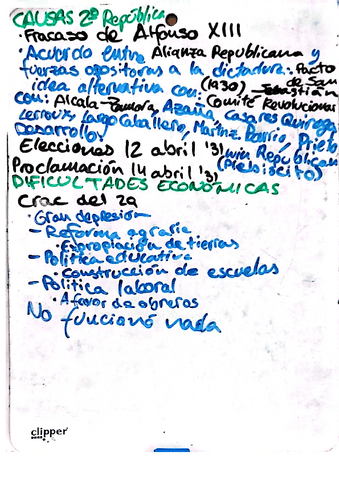 CAUSAS 2ª República
· Fracaso de Alfonso XIII
· Acuerdo entre Alianza Republicana y
fuerzas opositoras a la dictadura: Pacto
de San
idea alternativa con: (1930) Sebastián
con: Alcala-Zamora, Azaña, Casares Quiroga
Comité Revolucionar
Lerroux, Largo Caballero, Martínez Barrio, Prieto
Desarrollo
Elecciones 12 abril '31 win Republican
(Plebiscito)
Proclamación 14 abril '31
DIFICULTADES ECONÓMICAS
Crac del 29
· Gran depresion
- Reforma agraria
· Expropiación de tierras
- Política educativa
· Construcción de escuelas
- Política laboral
· A favor de obreros
No funcionó nada
clipper